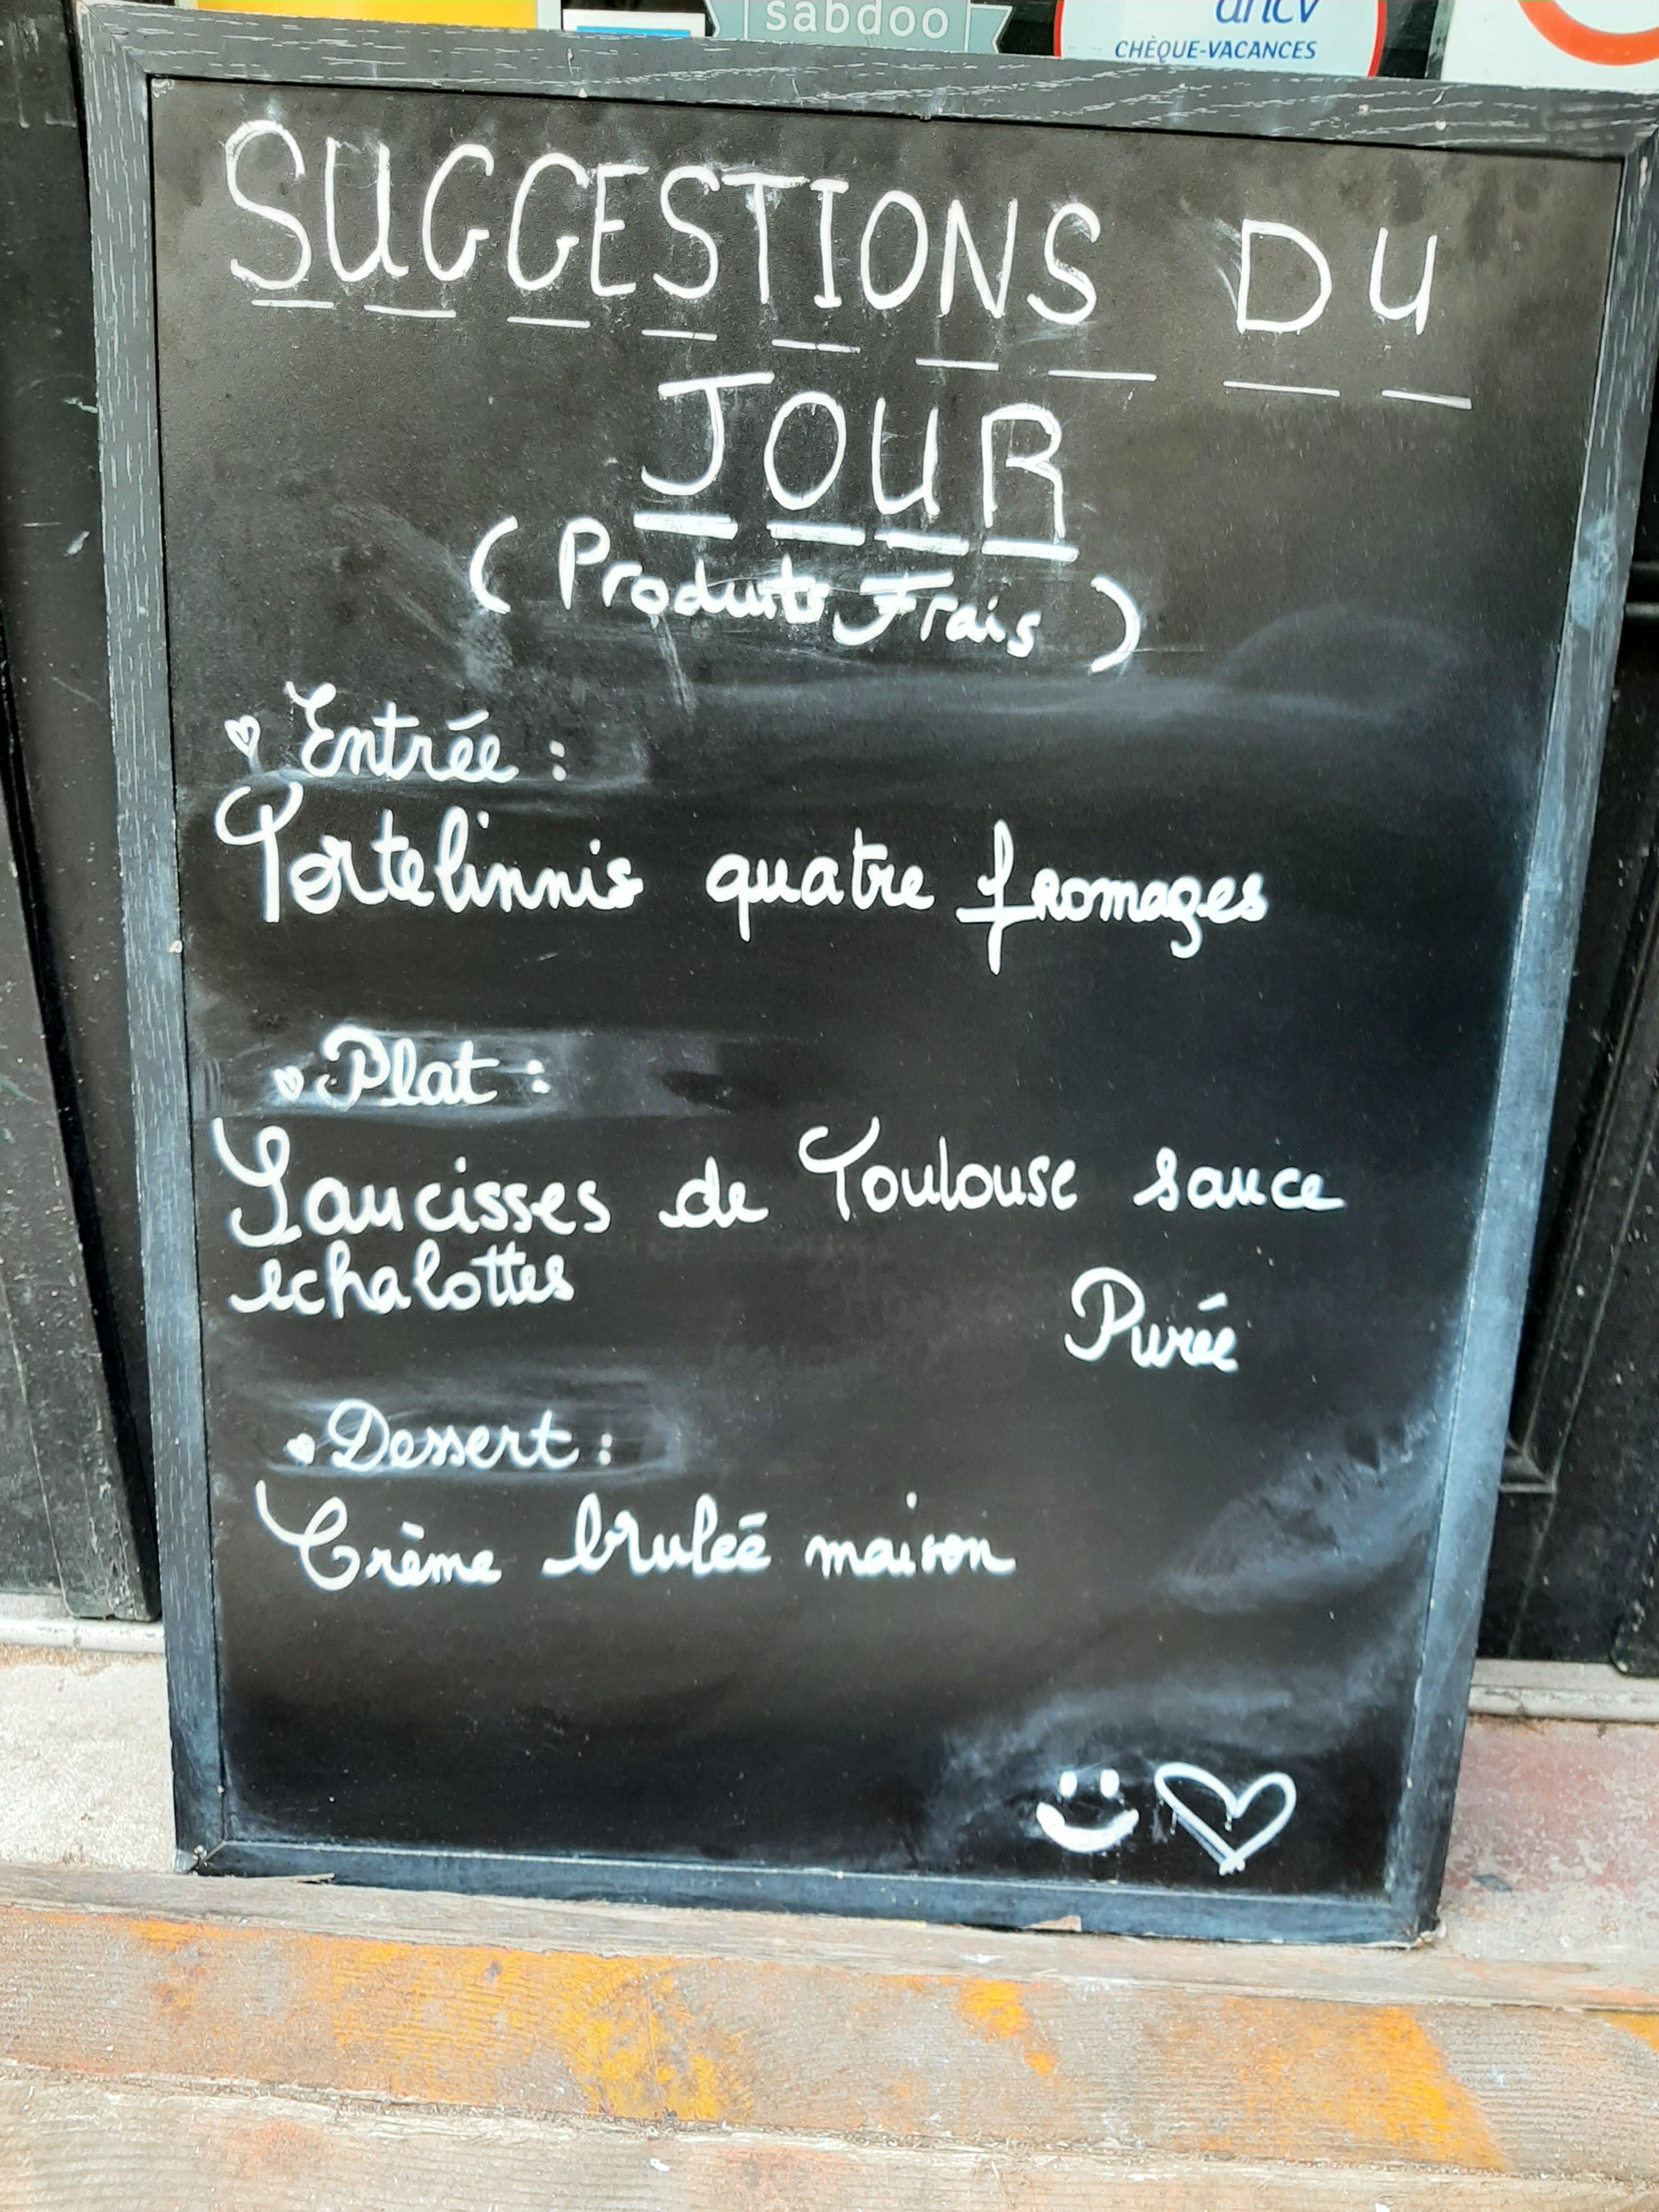 sabdoo
ancv
CHÈQUE-VACANCES
SUGGESTIONS DU
JOUR
(Produits Frais)
Entrée :
Tortelinnis quatre fromages
Plat :
Saucisses de Toulouse sauce
echalottes
Purée
Dessert :
Crème bruleé maison